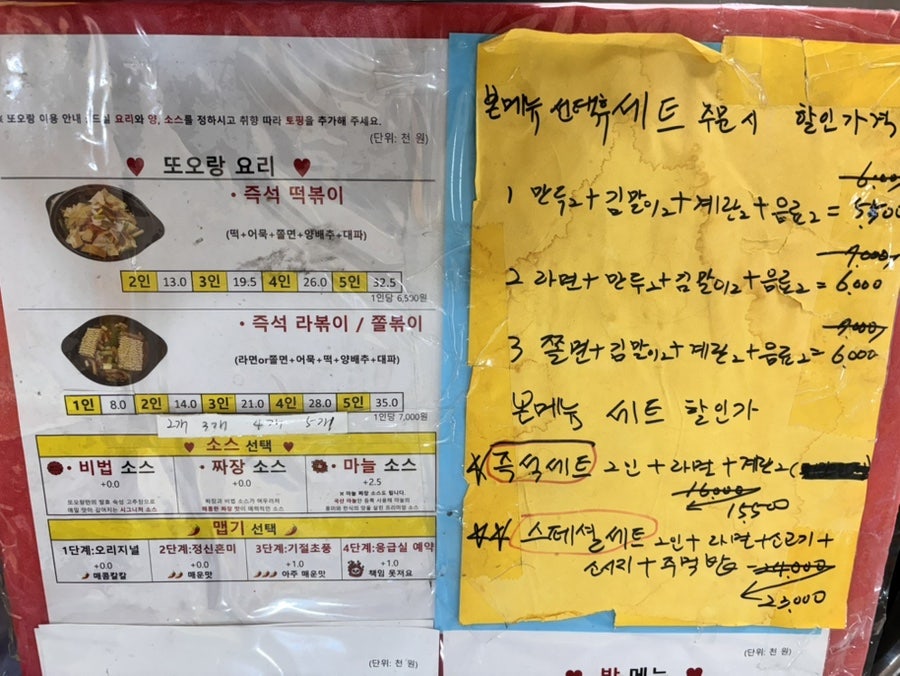 또오랑 이용 안내 : 드실 요리와 양, 소스를 정하시고 취향 따라 토핑을 추가해 주세요.
(단위: 천 원)
♥ 또오랑 요리 ♥
• 즉석 떡볶이
(떡+어묵+쫄면+양배추+대파)
2인 13.0 3인 19.5 4인 26.0 5인 32.5
1인당 6,500원
• 즉석 라볶이 / 쫄볶이
(라면or쫄면+어묵+떡+양배추+대파)
1인 8.0 2인 14.0 3인 21.0 4인 28.0 5인 35.0
1인당 7,000원
2개 3개 4개 5개
♥ 소스 선택 ♥
• 비법 소스
+0.0
또오랑만의 발효 숙성 고추장으로
매일 맛이 깊어지는 시그니처 소스
• 짜장 소스
+0.0
짜장과 비법 소스가 어우러져
매콤한 짜장 맛이 매력적인 소스
• 마늘 소스
+2.5
※ 마늘 짜장 소스도 됩니다.
국산 마늘만 등록 사용해 마늘의
풍미와 한식의 맛을 살린 프리미엄 소스
맵기 선택
1단계:오리지널
+0.0
매콤칼칼
2단계:정신혼미
+0.0
매운맛
3단계:기절초풍
+1.0
아주 매운맛
4단계:응급실 예약
+1.0
책임 못져요
(단위: 천 원)
본메뉴 선택후 세트 주문시 할인가격
1 만두2+김말이2+계란2+음료2 = 6.000 5,500
2 라면+만두2+김말이2+음료2 = 7.000 6,000
3 쫄면+김말이2+계란2+음료2= 7.000 6000
본메뉴 세트 할인가
☆ 즉석세트 2인+라면+계란2(
16000
15,500
☆☆ 스페셜세트 2인+라면+소고기+
소시지+주먹밥 24.000
23,000
(단위: 천 원)
♥ 밥 메뉴 ♥